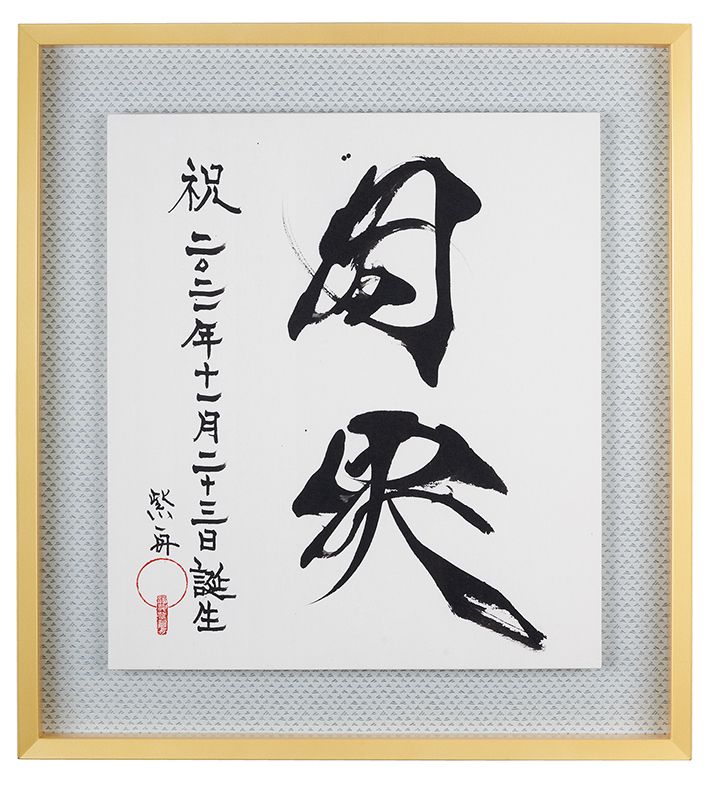 月央
祝 二〇二一年十一月二十三日誕生
紫舟